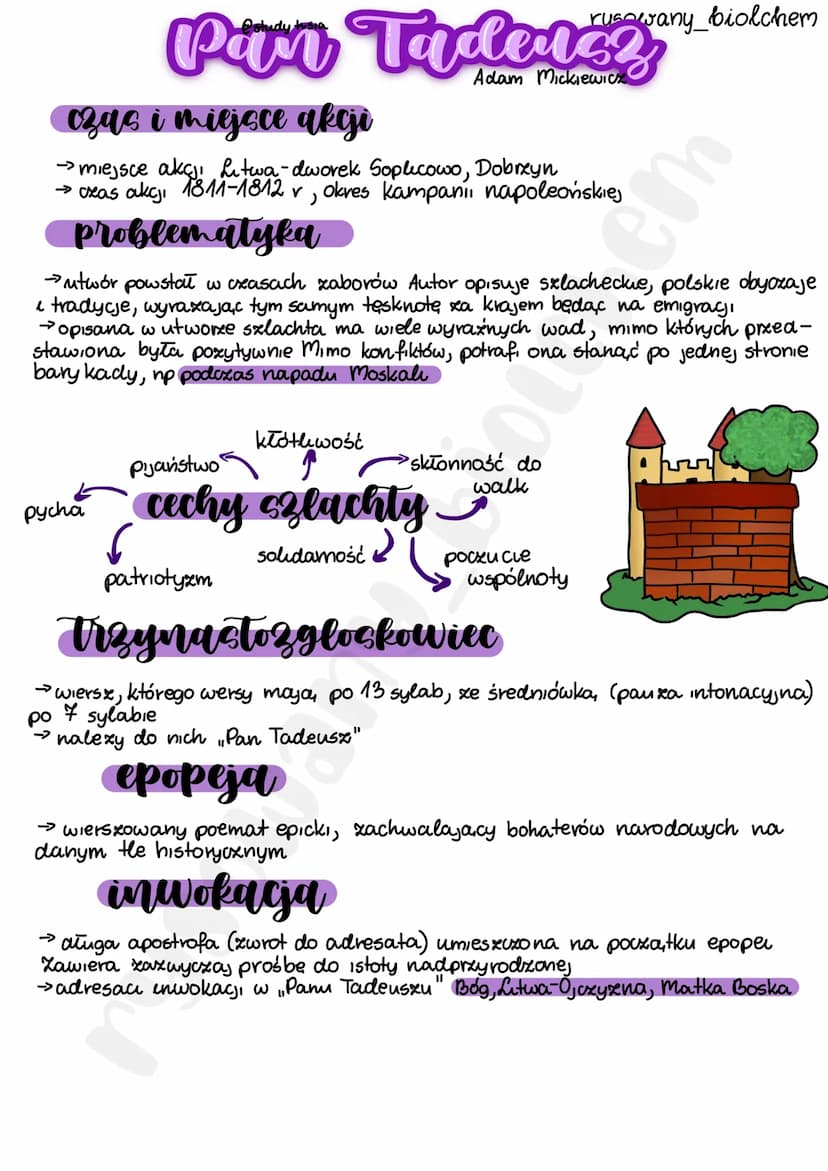 @study tysia
rysowany_biolchem
Pan Tadeusz
Adam Mickiewicz
czas i miejsce akcji
→ miejsce akcji Litwa-dworek Soplicowo, Dobrzyn
→ czas akcji 1811-1812 r, okres kampanii napoleońskiej
problematyka
→ utwór powstał w czasach zaborów Autor opisuje szlacheckie, polskie obyczaje
i tradycje, wyrażając tym samym tęsknotę za krajem będąc na emigracji
→ opisana w utworze szlachta ma wiele wyraźnych wad, mimo których przed-
stawiona była pozytywnie Mimo konfiktów, potrafi ona stanąć po jednej stronie
barykady, np podczas napadu Moskali
kłótliwość
pijaństwo
skłonność do
walk
pycha
cechy szlachty
solidarność
poczucie
wspólnoty
patriotyzm
trzynastozgłoskowiec
→ wiersz, którego wersy mają po 13 sylab, ze średniówką (pauza intonacyjna)
po 7 sylabie
→ należy do nich „Pan Tadeusz"
epopeja
→ wierszowany poemat epicki, zachwalający bohaterów narodowych na
danym tle historycznym
inwokacja
→ długa apostrofa (zwrot do adresata) umieszczona na początku epopei
Zawiera zazwyczaj prośbę do istoty nadprzyrodzonej
→ adresaci inwokacji w „Panu Tadeuszu" Bóg, Litwa-Ojczyzna, Matka Boska
rysowany_biolchem